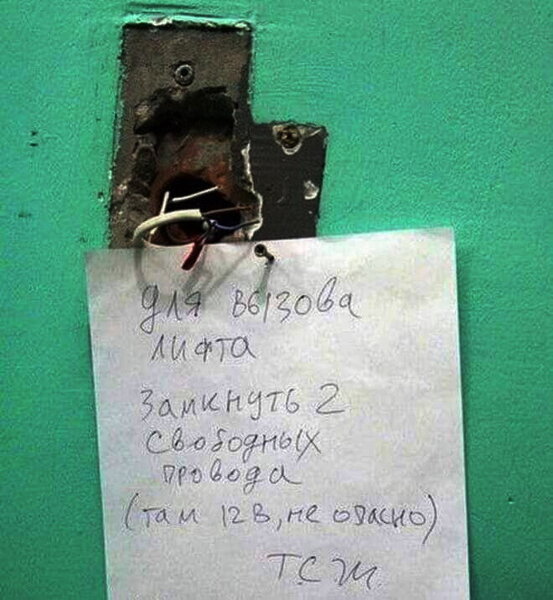 Для вызова
лифта
Замкнуть 2
свободных
провода
(там 12В, не опасно)
ТСЖ